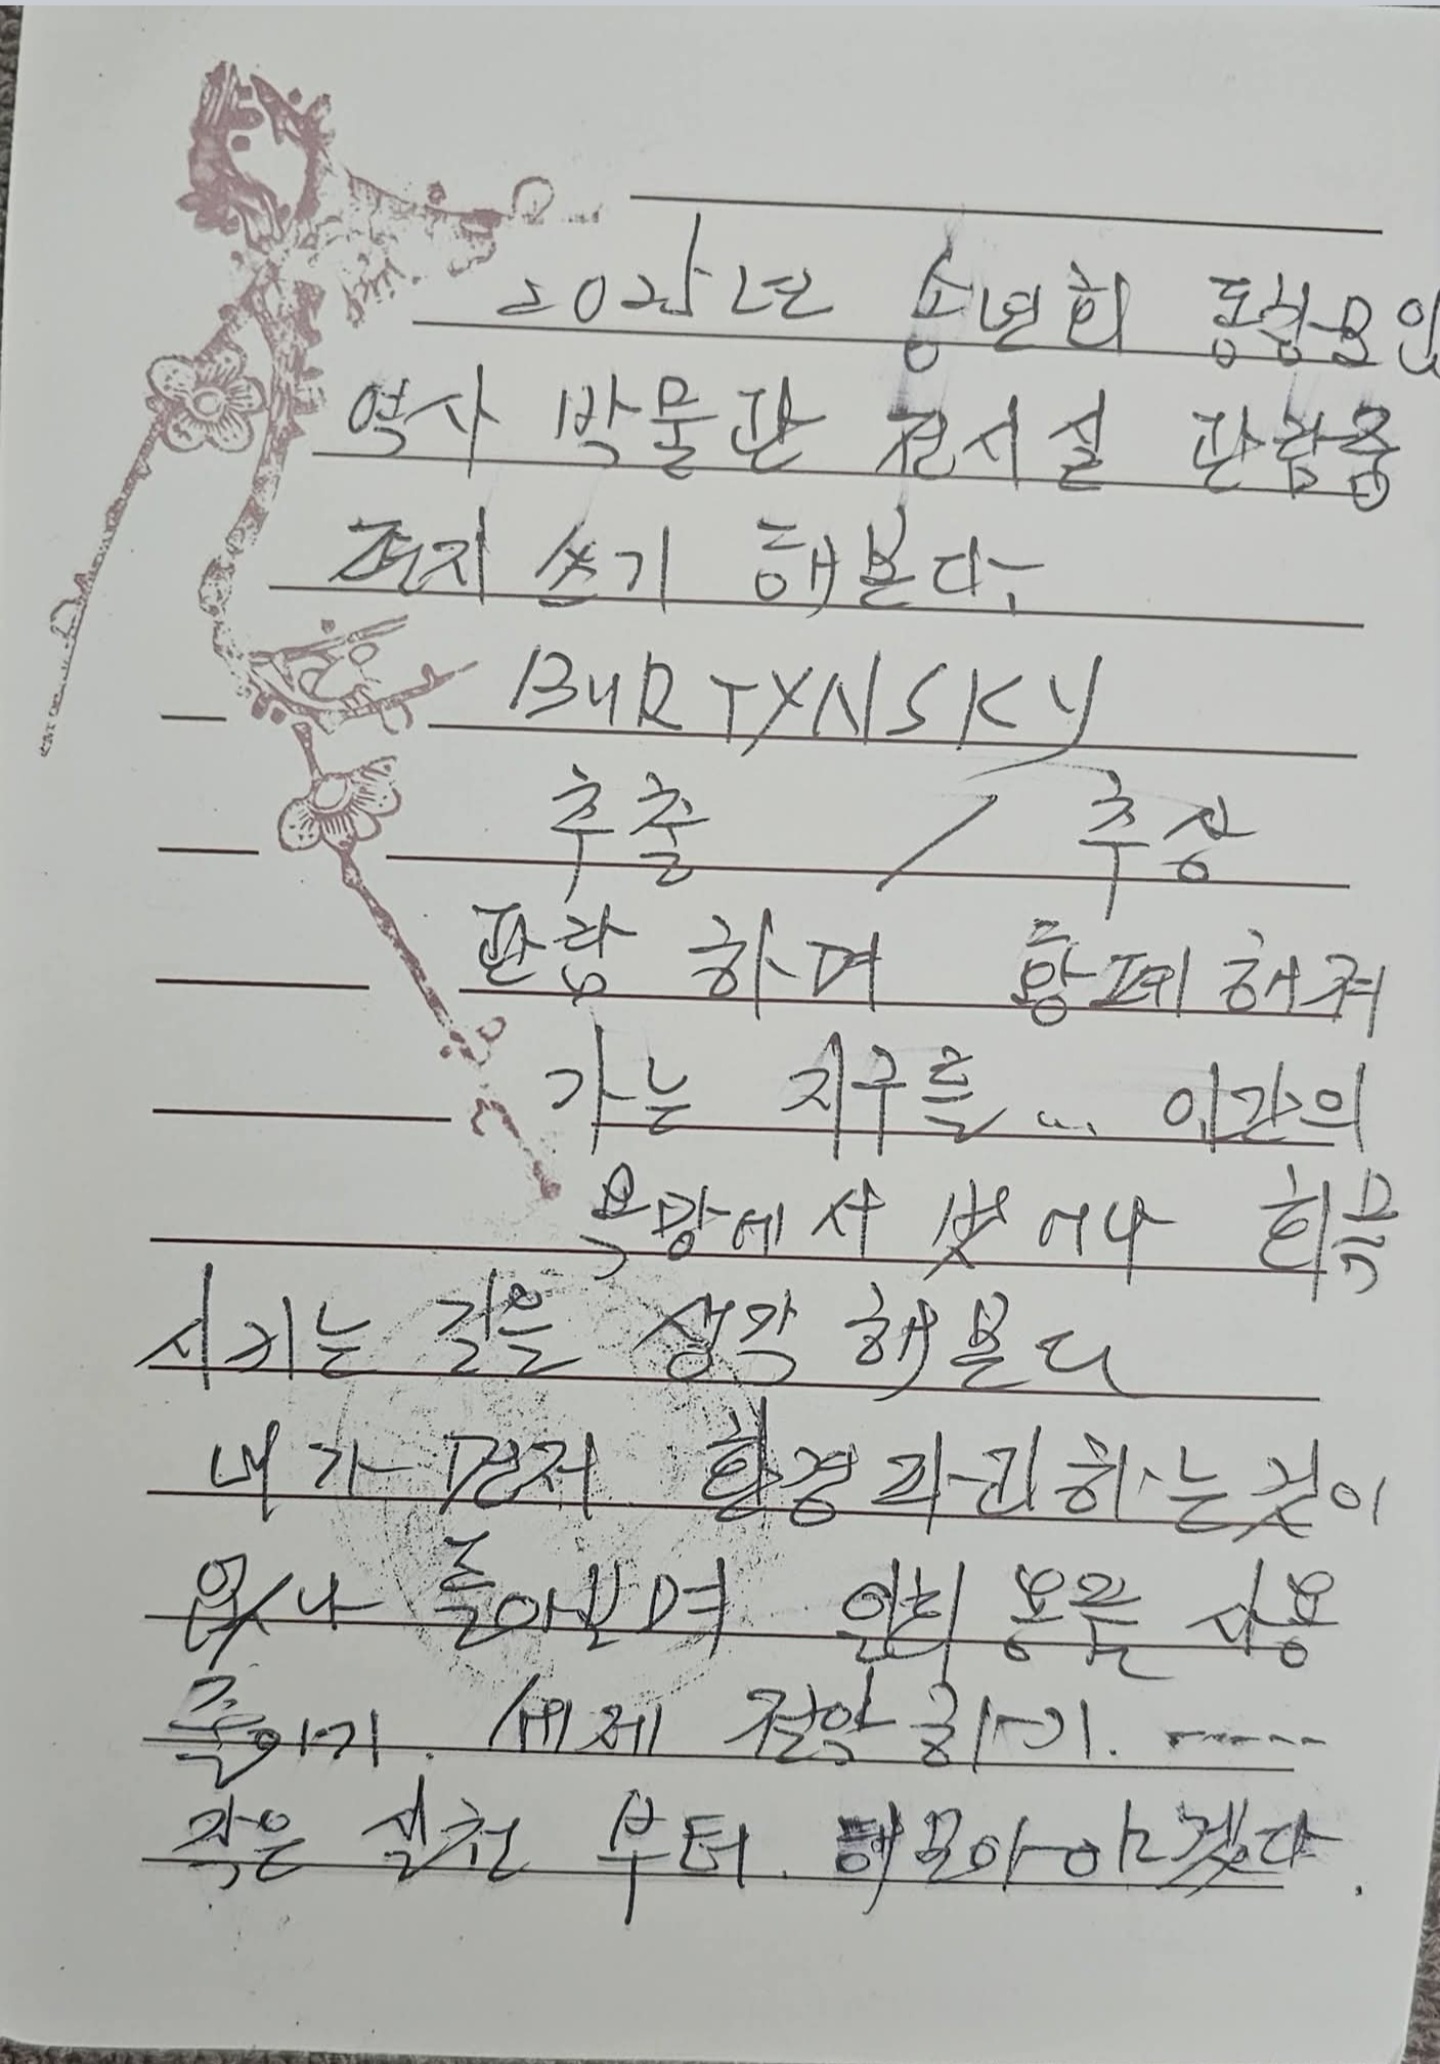 2025년 송년회 동창모임
역사 박물관 전시실 관람중
편지 쓰기 해본다.
BURTYNSKY
추출 / 추상
관람 하며 황폐해져
가는 지구를... 인간의
욕망에서 벗어나 회복
시키는 길을 생각 해본다
내가 먼저 환경파괴하는것이
없나 돌아보며 일회용품 사용
줄이기. 세제 절약하기. -----
작은 실천 부터. 해보아야겠다.